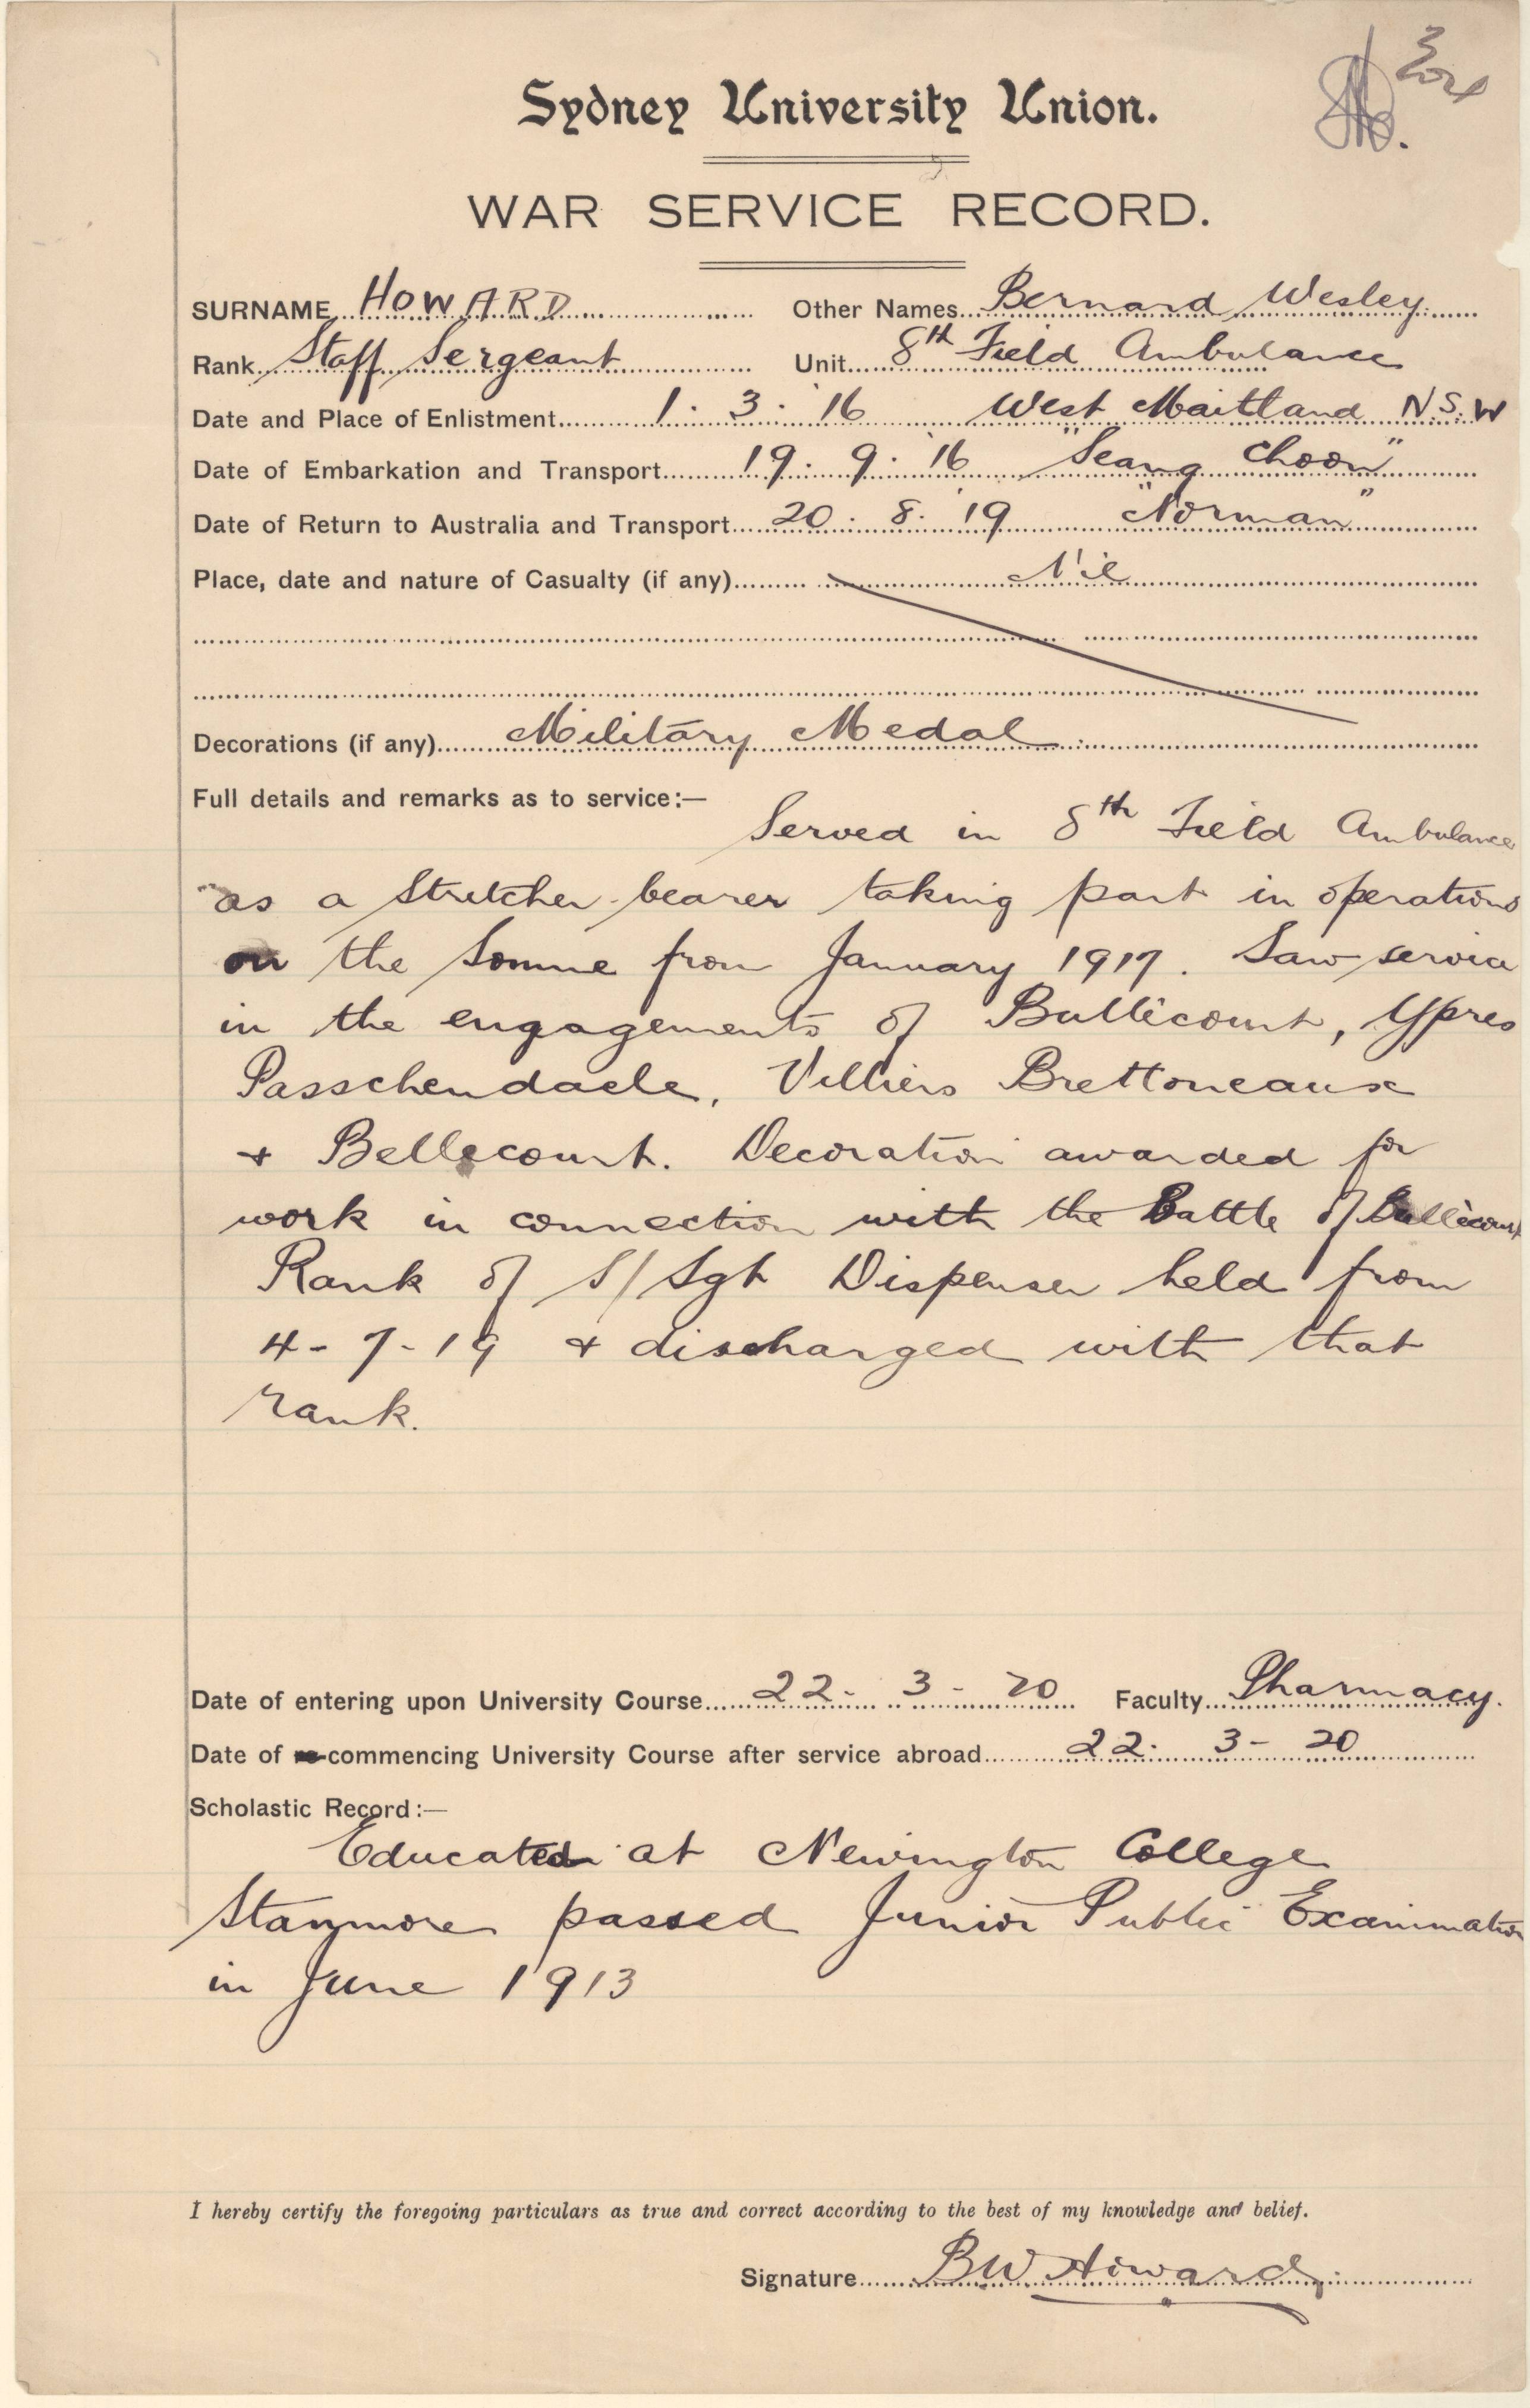 Sydney University Union.
WAR SERVICE RECORD.
SURNAME HOWARD Other Names Bernard Wesley
Rank Staff Sergeant Unit 8th Field Ambulance
Date and Place of Enlistment 1. 3. 16 West Maitland N.S.W
Date of Embarkation and Transport 19. 9. 16 "Seang Choon"
Date of Return to Australia and Transport 20. 8. 19 "Norman"
Place, date and nature of Casualty (if any) Nil
Decorations (if any) Military Medal
Full details and remarks as to service:—
Served in 8th Field Ambulance
as a Stretcher-bearer taking part in operations
on the Somme from January 1917. Saw service
in the engagements of Bullicourt, Ypres
Passchendaele, Villiers Brettoneaux
& Bellecourt. Decoration awarded for
work in connection with the Battle of Bullicourt
Rank of S/Sgt Dispenser held from
4-7-19 & discharged with that
rank.
Date of entering upon University Course 22-3-20 Faculty Pharmacy.
Date of re-commencing University Course after service abroad 22-3-20
Scholastic Record:—
Educated at Newington College
Stanmore passed Junior Public Examination
in June 1913
I hereby certify the foregoing particulars as true and correct according to the best of my knowledge and belief.
Signature BW Howard